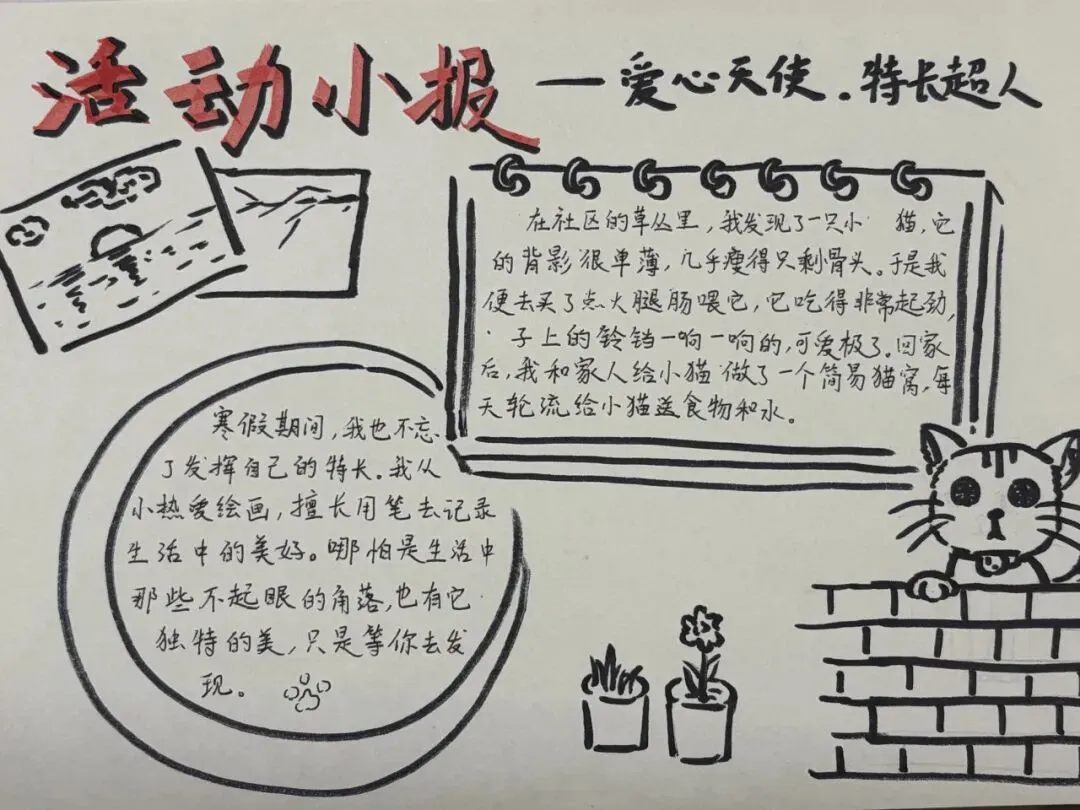 活动小报
一爱心天使.特长超人
在社区的草丛里，我发现了一只小 猫，它
的背影很单薄，几乎瘦得只剩骨头。于是我
便去买了点火腿肠喂它，它吃得非常起劲，
子上的铃铛一响一响的，可爱极了。回家
后，我和家人给小猫做了一个简易猫窝，每
天轮流给小猫送食物和水。
寒假期间，我也不忘
了发挥自己的特长。我从
小热爱绘画，擅长用笔去记录
生活中的美好。哪怕是生活中
那些不起眼的角落，也有它
独特的美，只是等你去发
现。